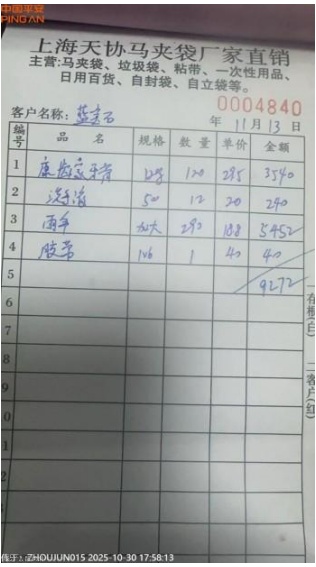 中国平安
PINGAN
上海天协马夹袋厂家直销
主营:马夹袋、垃圾袋、粘带、一次性用品、
日用百货、自封袋、自立袋等。
0004840
客户名称: 蓝宝石 年 11月13日
编号 品名 规格 数量 单价 金额
1 120 295 3540
2 洗手液 500 12 20 240
3 雨伞 加大 290 188 5452
4 胶带 1 40 40
5 9272
6
7
8
9
0
1
2
3
4
一存根(白)
二客户(红)
ZHOUJUN015 2025-10-30 17:58:13